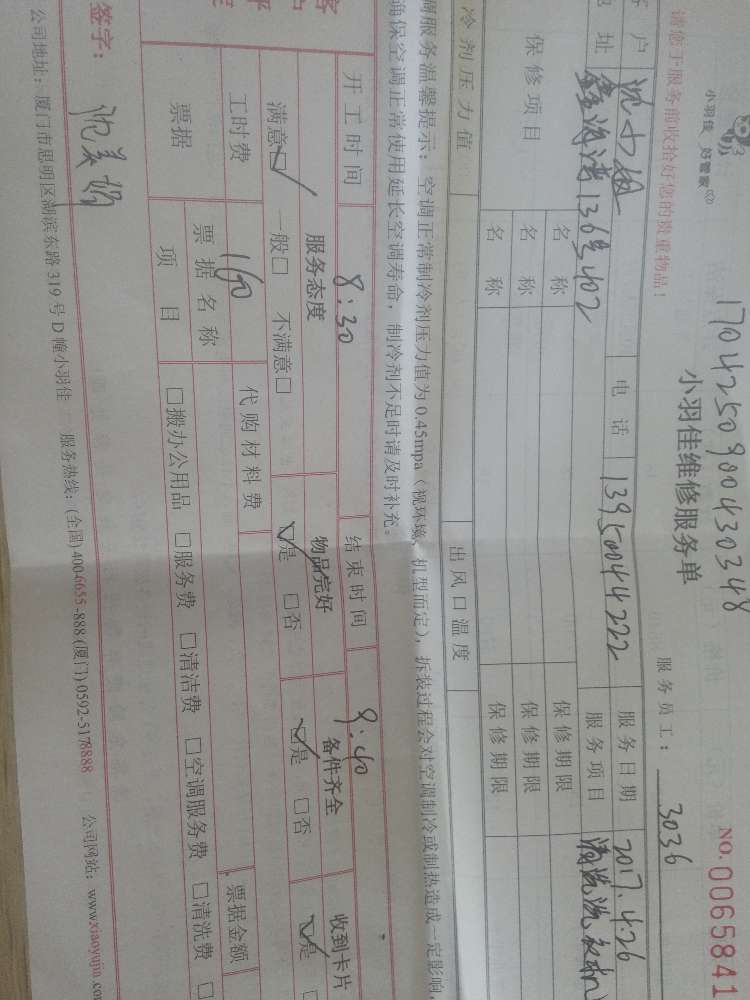 小羽佳 好管家
1704250900430348
小羽佳维修服务单
NO.0065841
请您于服务前收拾好您的贵重物品！
服务员工： 3036
户 沈小姐 电话 13950044222 服务日期 2017.4.26
址 136号402 服务项目 清洗洗衣机
保修项目 名称 保修期限
名称 保修期限
名称 保修期限
冷剂压力值 出风口温度
调服务温馨提示：空调正常制冷剂压力值为0.45mpa（视环境、机型而定），拆装过程会对空调制冷或制热造成一定影响，
确保空调正常使用延长空调寿命，制冷剂不足时请及时补充。
开工时间 8:30 结束时间 9:40
服务态度 物品完好 备件齐全 收到卡片
满意☑ 一般□ 不满意□ ☑是 □否 ☑是 □否 ☑是
工时费 160 代购材料费 票据金额
票据 票据名称
项目 □搬办公用品 □服务费 □清洁费 □空调服务费 □清洗费 □
签字：
公司地址：厦门市思明区湖滨东路319号D幢小羽佳 服务热线：(全国)400-6655-888 (厦门)0592-5178888 公司网站：www.xiaoyujia.com